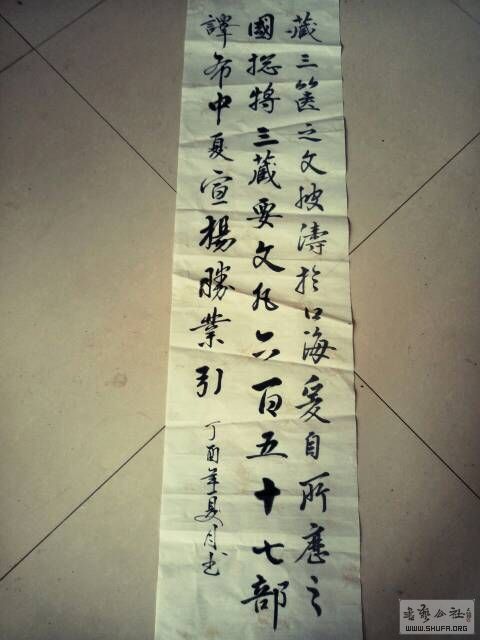 藏三篋之文波濤於口海爰自所歷之
國捴將三藏要文凡六百五十七部
譯布中夏宣揚勝業引
丁酉年夏月书
书艺公社
WWW.SHUFA.ORG